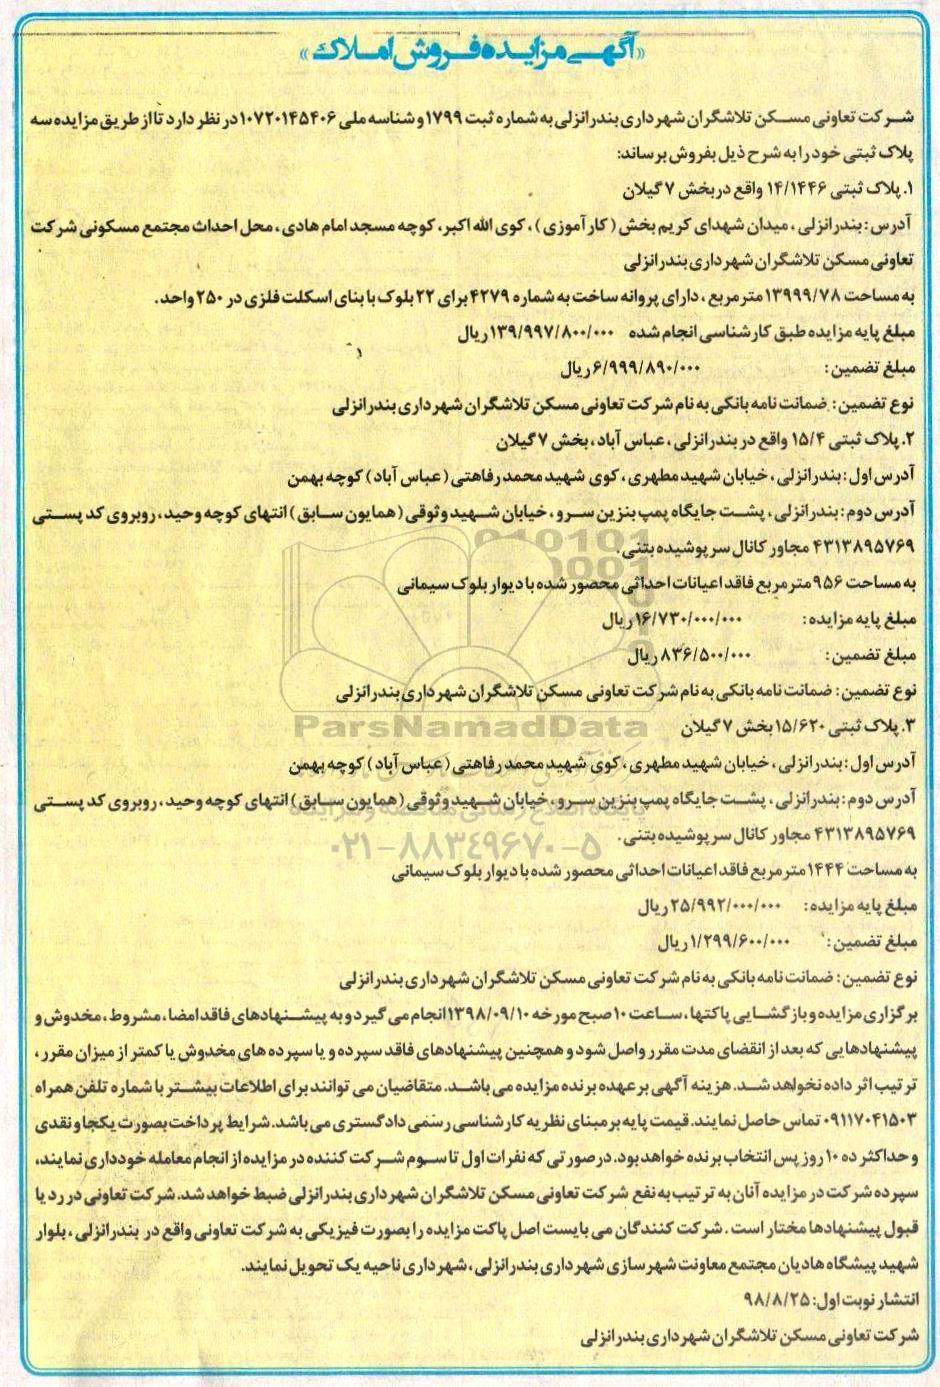 «آگهی مزایده فروش املاک»
شرکت تعاونی مسکن تلاشگران شهرداری بندرانزلی به شماره ثبت ۱۷۹۹ و شناسه ملی ۱۰۷۲۰۱۴۵۴۰۶ در نظر دارد تا از طریق مزایده سه
پلاک ثبتی خود را به شرح ذیل بفروش برساند:
۱. پلاک ثبتی ۱۴/۱۴۴۶ واقع در بخش ۷ گیلان
آدرس: بندرانزلی، میدان شهدای کریم بخش (کارآموزی)، کوی الله اکبر، کوچه مسجد امام هادی، محل احداث مجتمع مسکونی شرکت
تعاونی مسکن تلاشگران شهرداری بندرانزلی
به مساحت ۱۳۹۹۹/۷۸ مترمربع، دارای پروانه ساخت به شماره ۴۲۷۹ برای ۲۲ بلوک با بنای اسکلت فلزی در ۲۵۰ واحد.
مبلغ پایه مزایده طبق کارشناسی انجام شده ۱۳۹/۹۹۷/۸۰۰/۰۰۰ ریال
مبلغ تضمین: ۶/۹۹۹/۸۹۰/۰۰۰ ریال
نوع تضمین: ضمانت نامه بانکی به نام شرکت تعاونی مسکن تلاشگران شهرداری بندرانزلی
۲. پلاک ثبتی ۱۵/۴ واقع در بندرانزلی، عباس آباد، بخش ۷ گیلان
آدرس اول: بندرانزلی، خیابان شهید مطهری، کوی شهید محمد رفاهتی (عباس آباد) کوچه بهمن
آدرس دوم: بندرانزلی، پشت جایگاه پمپ بنزین سرو، خیابان شهید وثوقی (همایون سابق) انتهای کوچه وحید، روبروی کد پستی
۴۳۱۳۸۹۵۷۶۹ مجاور کانال سرپوشیده بتنی.
به مساحت ۹۵۶ مترمربع فاقد اعیانات احداثی محصور شده با دیوار بلوک سیمانی
مبلغ پایه مزایده: ۱۶/۷۳۰/۰۰۰/۰۰۰ ریال
مبلغ تضمین: ۸۳۶/۵۰۰/۰۰۰ ریال
نوع تضمین: ضمانت نامه بانکی به نام شرکت تعاونی مسکن تلاشگران شهرداری بندرانزلی
ParsNamadData
۳. پلاک ثبتی ۱۵/۶۲۰ بخش ۷ گیلان
آدرس اول: بندرانزلی، خیابان شهید مطهری، کوی شهید محمد رفاهتی (عباس آباد) کوچه بهمن
آدرس دوم: بندرانزلی، پشت جایگاه پمپ بنزین سرو، خیابان شهید وثوقی (همایون سابق) انتهای کوچه وحید، روبروی کد پستی
پایگاه اطلاع رسانی مناقصه و مزایده
۴۳۱۳۸۹۵۷۶۹ مجاور کانال سرپوشیده بتنی.
۰۲۱-۸۸۳۴۹۶۷۰-۵
به مساحت ۱۴۴۴ مترمربع فاقد اعیانات احداثی محصور شده با دیوار بلوک سیمانی
مبلغ پایه مزایده: ۲۵/۹۹۲/۰۰۰/۰۰۰ ریال
مبلغ تضمین: ۱/۲۹۹/۶۰۰/۰۰۰ ریال
نوع تضمین: ضمانت نامه بانکی به نام شرکت تعاونی مسکن تلاشگران شهرداری بندرانزلی
برگزاری مزایده و بازگشایی پاکتها، ساعت ۱۰ صبح مورخه ۱۳۹۸/۰۹/۱۰ انجام می گیرد و به پیشنهادهای فاقد امضا، مشروط، مخدوش و
پیشنهادهایی که بعد از انقضای مدت مقرر واصل شود و همچنین پیشنهادهای فاقد سپرده و یا سپرده های مخدوش یا کمتر از میزان مقرر،
ترتیب اثر داده نخواهد شد. هزینه آگهی بر عهده برنده مزایده می باشد. متقاضیان می توانند برای اطلاعات بیشتر با شماره تلفن همراه
۰۹۱۱۷۰۴۱۵۰۳ تماس حاصل نمایند. قیمت پایه بر مبنای نظریه کارشناسی رسمی دادگستری می باشد. شرایط پرداخت بصورت یکجا و نقدی
و حداکثر ده ۱۰ روز پس انتخاب برنده خواهد بود. درصورتی که نفرات اول تا سوم شرکت کننده در مزایده از انجام معامله خودداری نمایند،
سپرده شرکت در مزایده آنان به ترتیب به نفع شرکت تعاونی مسکن تلاشگران شهرداری بندرانزلی ضبط خواهد شد. شرکت تعاونی در رد یا
قبول پیشنهادها مختار است. شرکت کنندگان می بایست اصل پاکت مزایده را بصورت فیزیکی به شرکت تعاونی واقع در بندرانزلی، بلوار
شهید پیشگاه هادیان مجتمع معاونت شهرسازی شهرداری بندرانزلی، شهرداری ناحیه یک تحویل نمایند.
انتشار نوبت اول: ۹۸/۸/۲۵
شرکت تعاونی مسکن تلاشگران شهرداری بندرانزلی